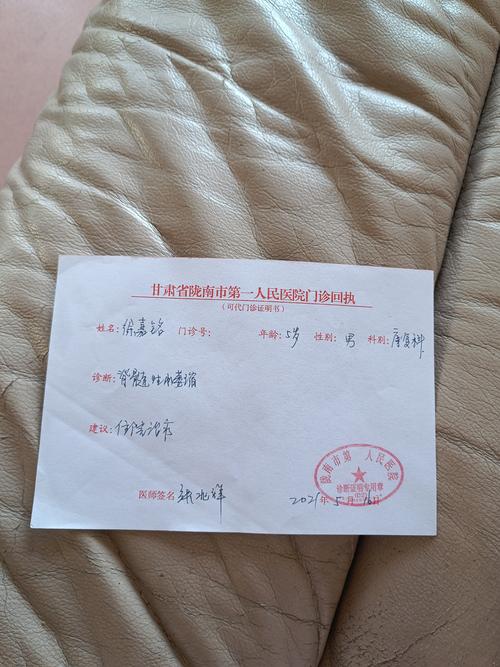 甘肃省陇南市第一人民医院门诊回执
(可代门诊证明书)
姓名: 徐嘉铭 门诊号: 年龄: 5岁 性别: 男 科别: 康复科
诊断: 脊髓性肌萎缩
建议: 住院治疗
陇南市第一人民医院
诊断证明专用章
医师签名 张兆祥 2021年5月16日